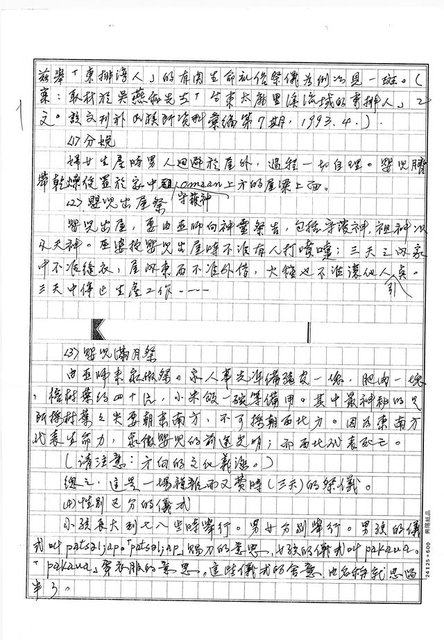 茲舉「東排灣人」的有関生命礼俗祭儀為例以見一斑。(
案:取材於吳燕和先生「台東太麻里溪流域的東排人」之
文。該文刊於民族所資料彙編第7期,1993.4.)。
1
(1)分娩
婦女生產時男人迴避於屋外,過程一切自理。嬰児臍
帶乾燥後置於家中祖omsan上方的屋樑上面。
守護神
(2)嬰児出屋祭
嬰児出屋,要由巫師向神靈祭告,包括守護神、祖神以
及天神。巫婆抱嬰児出屋時不准有人打噴嚏;三天之内家
中不准縫衣,屋内東西不准外借,火種也不准讓他人
引
三天中停止生產工作。----
(3)嬰児滿月祭
由巫師來家做祭。家人事先準備豬皮一塊,肥肉一塊
,樹葉約四十片,小米飯一碗等備用。其中最神秘的
葉之尖要朝東南方,不可指朝西北方。因為東南方
代表生命力,象徵嬰児的前途光明;而西北代表死亡。
(請注意:方向的文化義涵。)
總之,這是一場複雜而又費時(三天)的祭儀。
(4)性別区分的儀式
小孩長大到七八歲時舉行。男女分別舉行。男孩的儀
式叫patsaljap。「patsaljap」的意思,女孩的儀式叫pakana。
「pakana」穿衣服的意思。這些儀式的含意,也名符其實思過
半了。
24×25=600